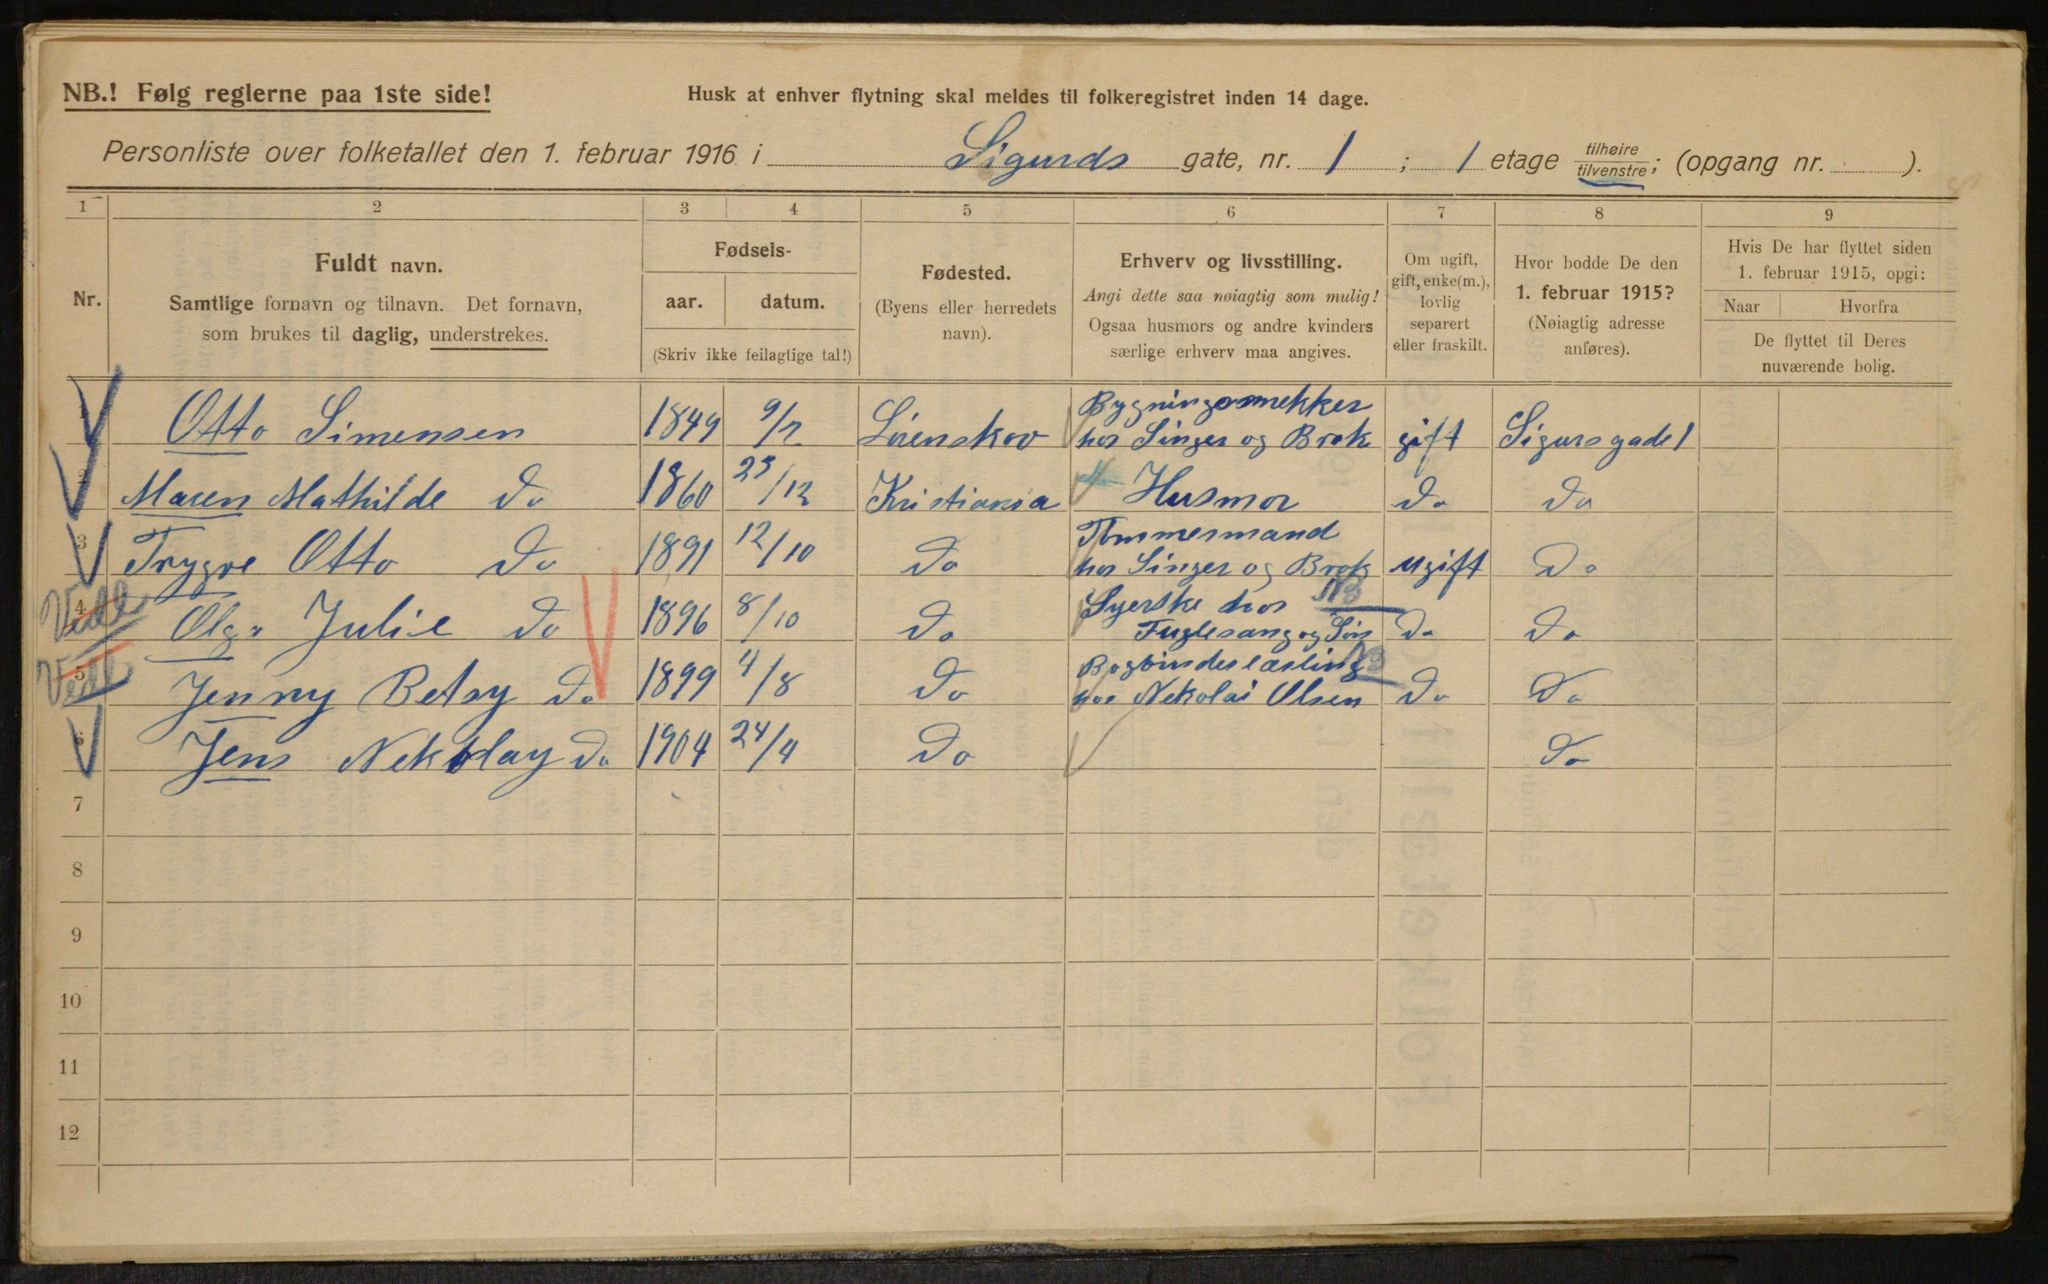 NB.! Følg reglerne paa 1ste side!
Husk at enhver flytning skal meldes til folkeregistret inden 14 dage.
Personliste over folketallet den 1. februar 1916 i Sigurds gate, nr. 1 ; 1 etage tilhøire / tilvenstre ; (opgang nr. ).
1 2 3 4 5 6 7 8 9
Nr.
Fuldt navn.
Samtlige fornavn og tilnavn. Det fornavn,
som brukes til daglig, understrekes.
Fødsels-
aar. datum.
(Skriv ikke feilagtige tal!)
Fødested.
(Byens eller herredets
navn).
Erhverv og livsstilling.
Angi dette saa nøiagtig som mulig!
Ogsaa husmors og andre kvinders
særlige erhverv maa angives.
Om ugift,
gift, enke(m.),
lovlig
separert
eller fraskilt.
Hvor bodde De den
1. februar 1915?
(Nøiagtig adresse
anføres).
Hvis De har flyttet siden
1. februar 1915, opgi:
Naar Hvorfra
De flyttet til Deres
nuværende bolig.
1 Otto Simensen 1849 9/2 Lörenskov Bygningssnekker
hos Singer og Brok gift Sigursgade 1
2 Maren Mathilde Do 1860 23/12 Kristiania Husmor Do Do
3 Trygve Otto Do 1891 12/10 Do Tömmermand
hos Singer og Brok ugift Do
4 Vedl Olga Julie Do 1896 8/10 Do Syerske hos NB
Fuglesang og Sön Do Do
5 Vedl Jenny Betsy Do 1899 4/8 Do Bogbinderlærling NB
hos Nekolai Olsen Do Do
6 Jens Nekolay Do 1904 24/4 Do Do
7
8
9
10
11
12